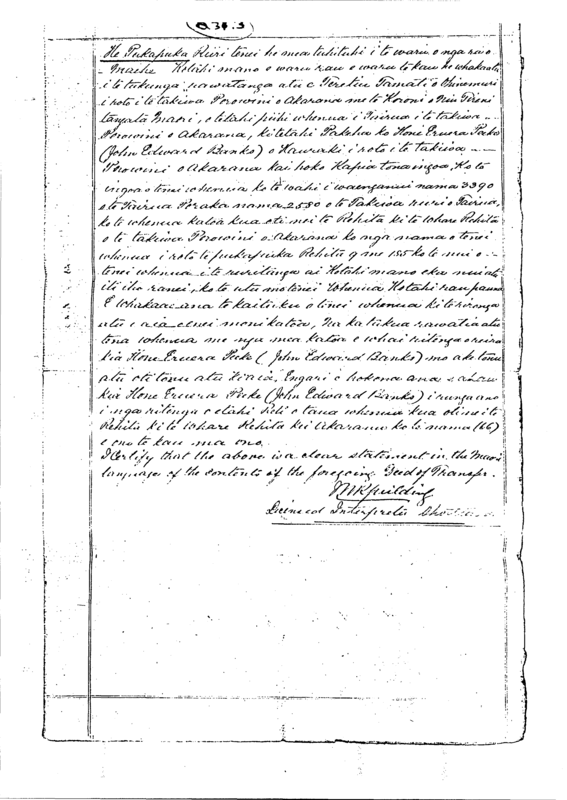 0.34.3
He Pukapuka Ruri tenei he mea tuhituhi i te waru o nga ra o
Maehe Kotahi mano e waru rau e waru te kau he whakaatu
i te tukunga rawatanga atu e Teretiu Tamati o Ohinemuri
i roto i te takiwa Porowini o Akarana me te Koroni o Niu Tireni
tangata Maori, o tetahi pihi whenua i Tairua i te takiwa
Porowini o Akarana, ki tetahi Pakeha ko Hone Eruera Peke
(John Edward Banks) o Hauraki i roto i te takiwa
Porowini o Akarana kai hoko Kapia tona ingoa, Ko te
ingoa o temi whenua ko te wahi i waenganui nama 3390
o te Tairua Poraka nama 2550 o te Takiwa ruri o Tairua,
ko te whenua katoa kua oti nei te Rehita ki te Whare Rehita
o te takiwa Porowini o Akarana ko nga nama o tenei
whenua i roto i te pukapuka Rehita 9 me 155 ko te nui o
tenei whenua i te ruritanga ai Kotahi mano eka nui atu
iti iho ranei, ko te utu mo tenei Whenua Kotahi rau pauna
E whakaae ana te kaituku o tenei whenua ki te rironga
atu i aia enei moni katoa, Na ka tukua rawatia atu
tona whenua me nga mea katoa e whai ritinga oreira
kia Hone Eruera Peke (John Edward Banks) mo ake tonu
atu oti tonu atu Engari e hokona ana
kia Hone Eruera Peke (John Edward Banks) i runga ano
i nga ritenga o etahi Riti o taua whenua kua otinei te
Rehita ki te Whare Rehita kei Akarana ko te nama (66)
e ono te kau ma ono.
I Certify that the above is a clear statement in the Maori
language of the contents of the foregoing Deed of Transfr.
Licensed Interpreter